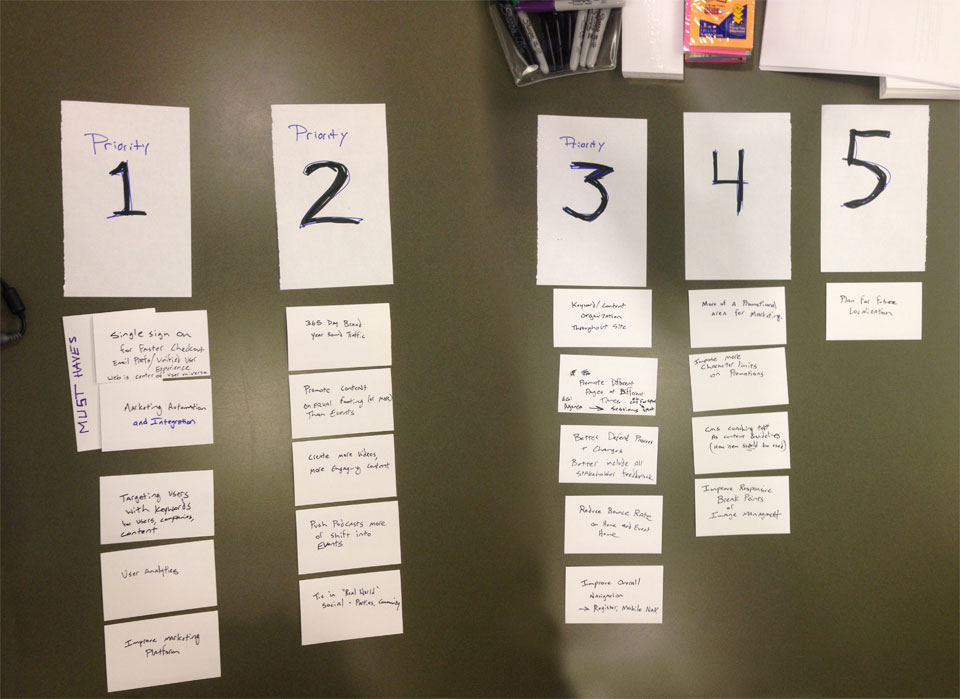 Priority
1
MUST HAVES
Single sign on
for Faster Checkout
Email Prefs/Unified User
Experience
Web is center of user universe
Marketing Automation
and Integration
Targeting Users
with Keywords
by users, companies,
content
User Analytics
Improve Marketing
Platform
Priority
2
365 Day Brand
year Round Traffic
Promote Content
on equal footing (or more)
Than Events
Create more Videos,
More Engaging Content
Push Podcasts more
or shift into
Events
Tie in "Real World"
Social - Parties, Community
Priority
3
Keyword/Content
Organization
Throughout Site
Promote Different
Pages at Different
Times
Agenda → Sessions
Better Defend Process
+ Changes
Better include all
Stakeholder feedback
Reduce Bounce Rate
on Home and Event
Home
Improve Overall
Navigation
→ Register, Mobile Nav
4
More of a Promotional
area for Marketing
Impose more
Character limits
on Promotions
CMS coaching text
As content guidelines
(How item should be used)
Improve Responsive
Break Points
or
Image Managment
5
Plan for Future
Localization